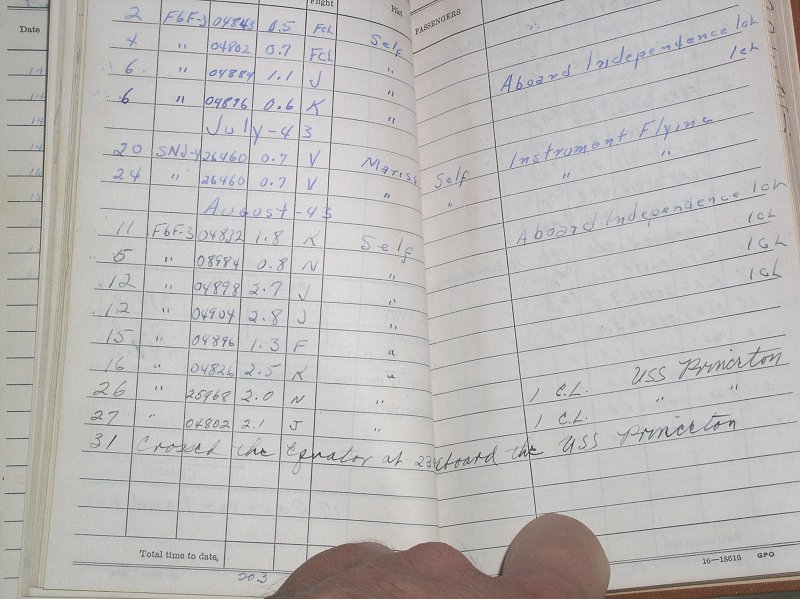 Date Flight Pilot PASSENGERS
2 F6F-3 04843 0.5 FCL Self "
4 " 04802 0.7 FCL " Aboard Independence 1ch
6 " 04884 1.1 J " 1ch
6 " 04876 0.6 K "
July-43
20 SNJ-4 26460 0.7 V Self Instrument Flying
24 " 26460 0.7 V " " " "
August-43
11 F6F-3 04832 1.8 K Self Aboard Independence 1ch
5 " 08984 0.8 N " 1ch
12 " 04898 2.7 J " 1ch
12 " 04904 2.8 J " 1ch
15 " 04896 1.3 F "
16 " 04826 2.5 K "
26 " 25968 2.0 N " 1 C.L. USS Princeton
27 " 04802 2.1 J " 1 C.L. " "
31 Crossed the Equator at aboard the USS Princeton
Total time to date,
20.3
16—18616 GPO